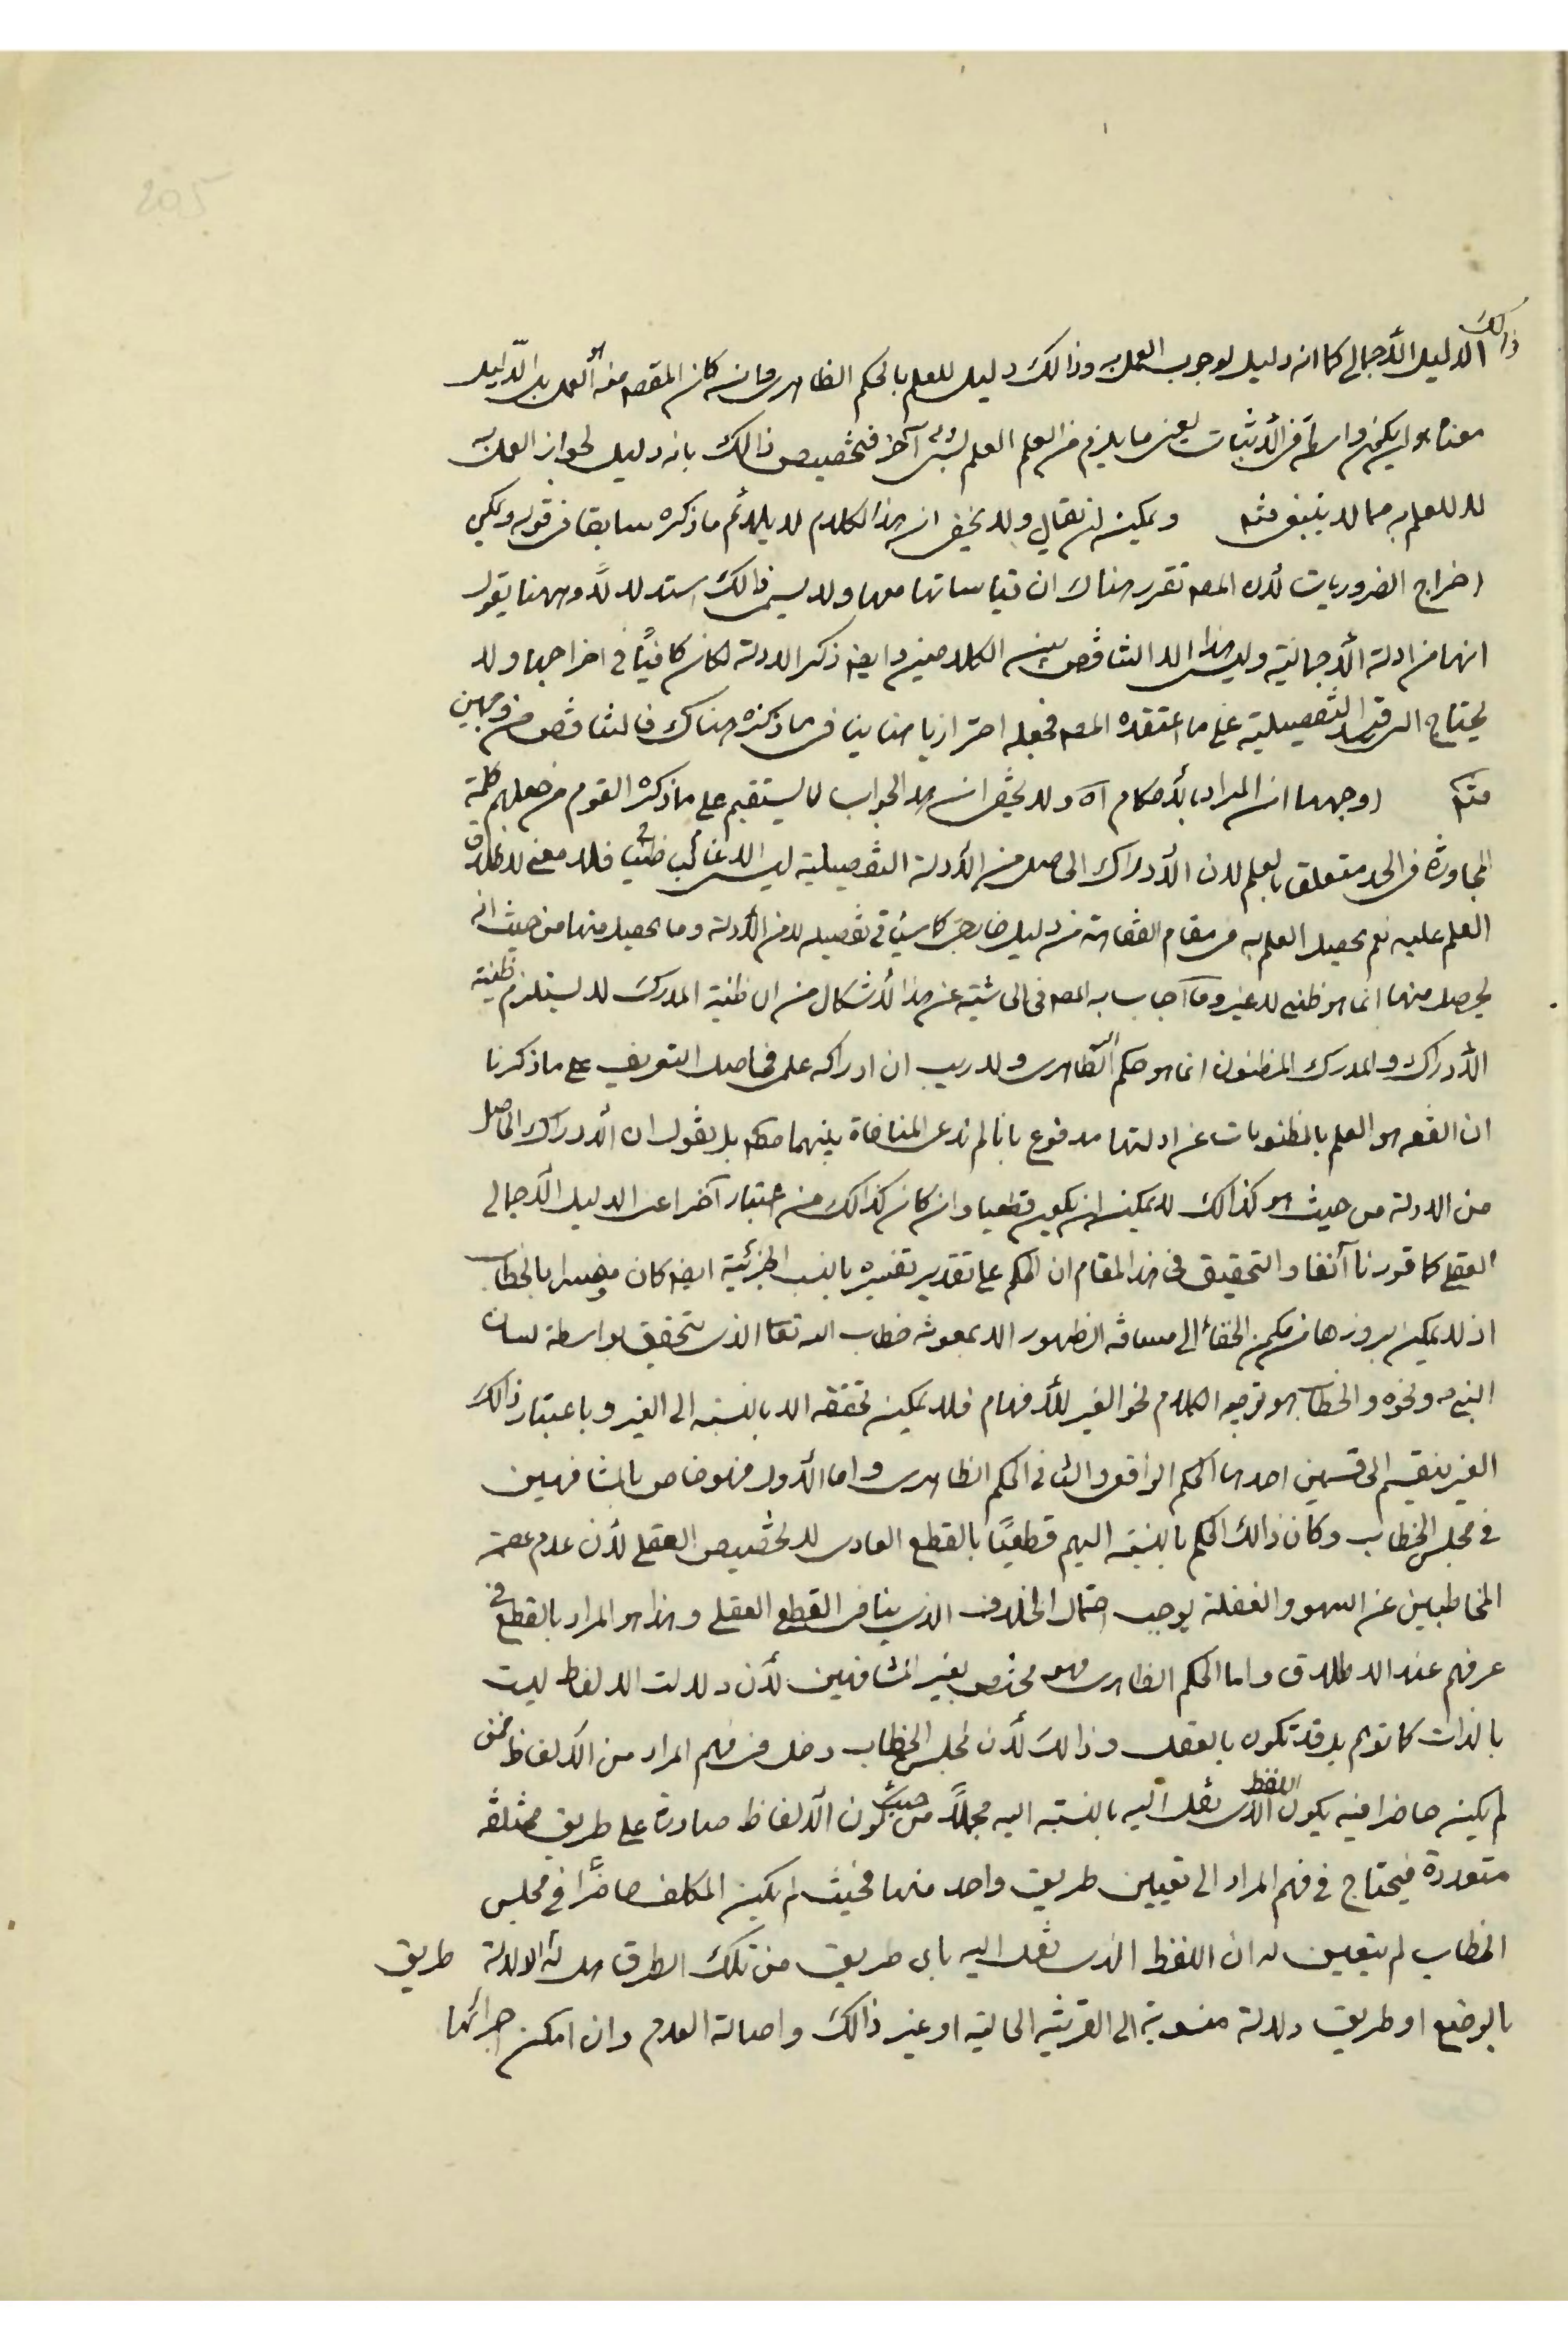 205
ذالك
الدليل الأجمالي كما انه دليل لوجوب العمل به وذالك دليل للعلم بالحكم الظاهري وان كان المقصود منه هو العمل بل الدليل
معناه ان يكون واسطة في الأثبات يعني ما يلزم من العلم العلم بشئ آخر فتخصيص ذالك بانه دليل لجواز العمل به
لا للعلم به مما لا ينبغي منه ويمكن ان يقال ولا يخفى ان هذا الكلام لا يلائم ما ذكره سابقا في قوله ويمكن
اخراج الضروريات لأن المصه تقرر هناك ان قياساتها معها ولا يسمى ذالك استدلالاً وههنا يقول
انها من ادلة الأجمالية وليس هذا الا التناقض بين الكلامين وايضه ذكر الادلة لكان كافياً في اخراجها ولا
يحتاج الى قيد التفصيلية على ما اعتقده المصه فجعله احترازيا هنا ينافي ما ذكره هناك فالتناقض من وجهين
منه اوجهها ان المراد بالأحكام آه ولا يخفى ان هذا الجواب لا يستقيم على ما ذكره القوم من جعلهم كلمة
المجاوزة في الحد متعلقة بالعلم لان الأدراك الحاصل من الأدلة التفصيلية ليس الا غالب ظنياً فلا معنى لاطلاق
العلم عليه نعم يحصل العلم به في مقام الفقاهة من دليل خارجي كما سيأتي تفصيله لا من الأدلة وما يحصل منها من حيث انه
يحصل منها انما هو ظني لا غير وما أجاب به المصه في الحاشية عن هذا الأشكال من ان ظنية المدرك لا يستلزم ظنية
الأدراك والمدرك المظنون انما هو حكم الظاهري ولا ريب ان ادراكه علمي فحاصل التعريف على ما ذكرنا
ان الفقه هو العلم بالمظنونات عن ادلتها مدفوع بانا لم ندع المنافاة بينهما منه بل نقول ان الأدراك الحاصل
من الادلة من حيث هو كذالك لا يمكن ان يكون قطعيا وان كان كذالك من اعتبار آخر اعني الدليل الأجمالي
العقلي كما قررنا آنفا والتحقيق في هذا المقام ان الحكم على تقدير تفسيره بالنسب الجزئية ايضه كان مفسرا بالخطاب
اذ لا يمكن بروزها من مكمن الخفاء الى مسافة الظهور الا بمعونة خطاب الله تعالى الذي يتحقق بواسطة لسان
النبي ص ونحوه والخطاب هو توجيه الكلام نحو الغير للأفهام فلا يمكن تحققه الا بالنسبة الى الغير وباعتبار ذالك
الغير ينقسم الى قسمين احدها الحكم الواقعي والثاني الحكم الظاهري واما الأول فهو خاص بالمشافهين
في مجلس الخطاب وكان ذالك الحكم بالنسبة اليهم قطعياً بالقطع العادي لا بخصيص العقلي لأن عدم عصمة
المخاطبين عن السهو والغفلة يوجب احتمال الخلاف الذي ينافي القطع العقلي وهذا هو المراد بالقطع في
عرفهم عند الاطلاق واما الحكم الظاهري فهو مختص بغير المشافهين لأن دلالت الالفاظ ليست
بالذات كما توهم بل قد تكون بالعقل وذالك لأن لمجلس الخطاب دخل في فهم المراد من الألفاظ فمن
لم يكن حاضرا فيه يكون اللفظ الذي نقل اليه بالنسبة اليه مجملاً من حيث كون الألفاظ صادرة على طريق مختلفة
متعددة فيحتاج في فهم المراد الى تعيين طريق واحد منها فحيث لم يكن المكلف حاضراً في مجلس
الخطاب لم يتعين له ان اللفظ الذي نقل اليه باي طريق من تلك الطرق هل له الدلالة طريق
بالوضع او طريق دلالة منسوبة الى القرينة الحالية او غير ذالك واصالة العدم وان امكن اجرائها